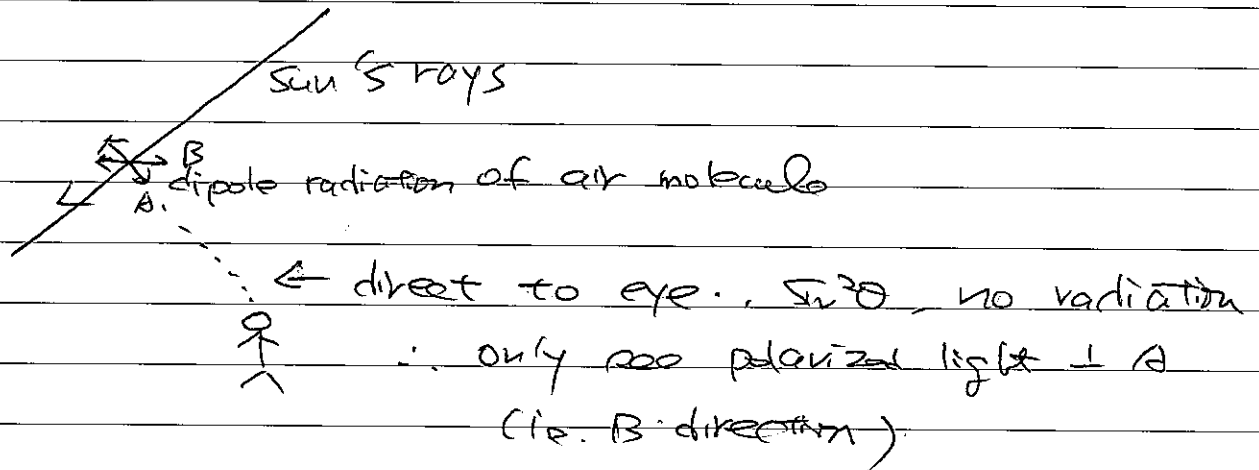 Sun's rays
B
dipole radiation of air molecule
A.
← direct to eye., Sin²θ no radiation
∴ only see polarized light ⊥ A
(ie. B direction)